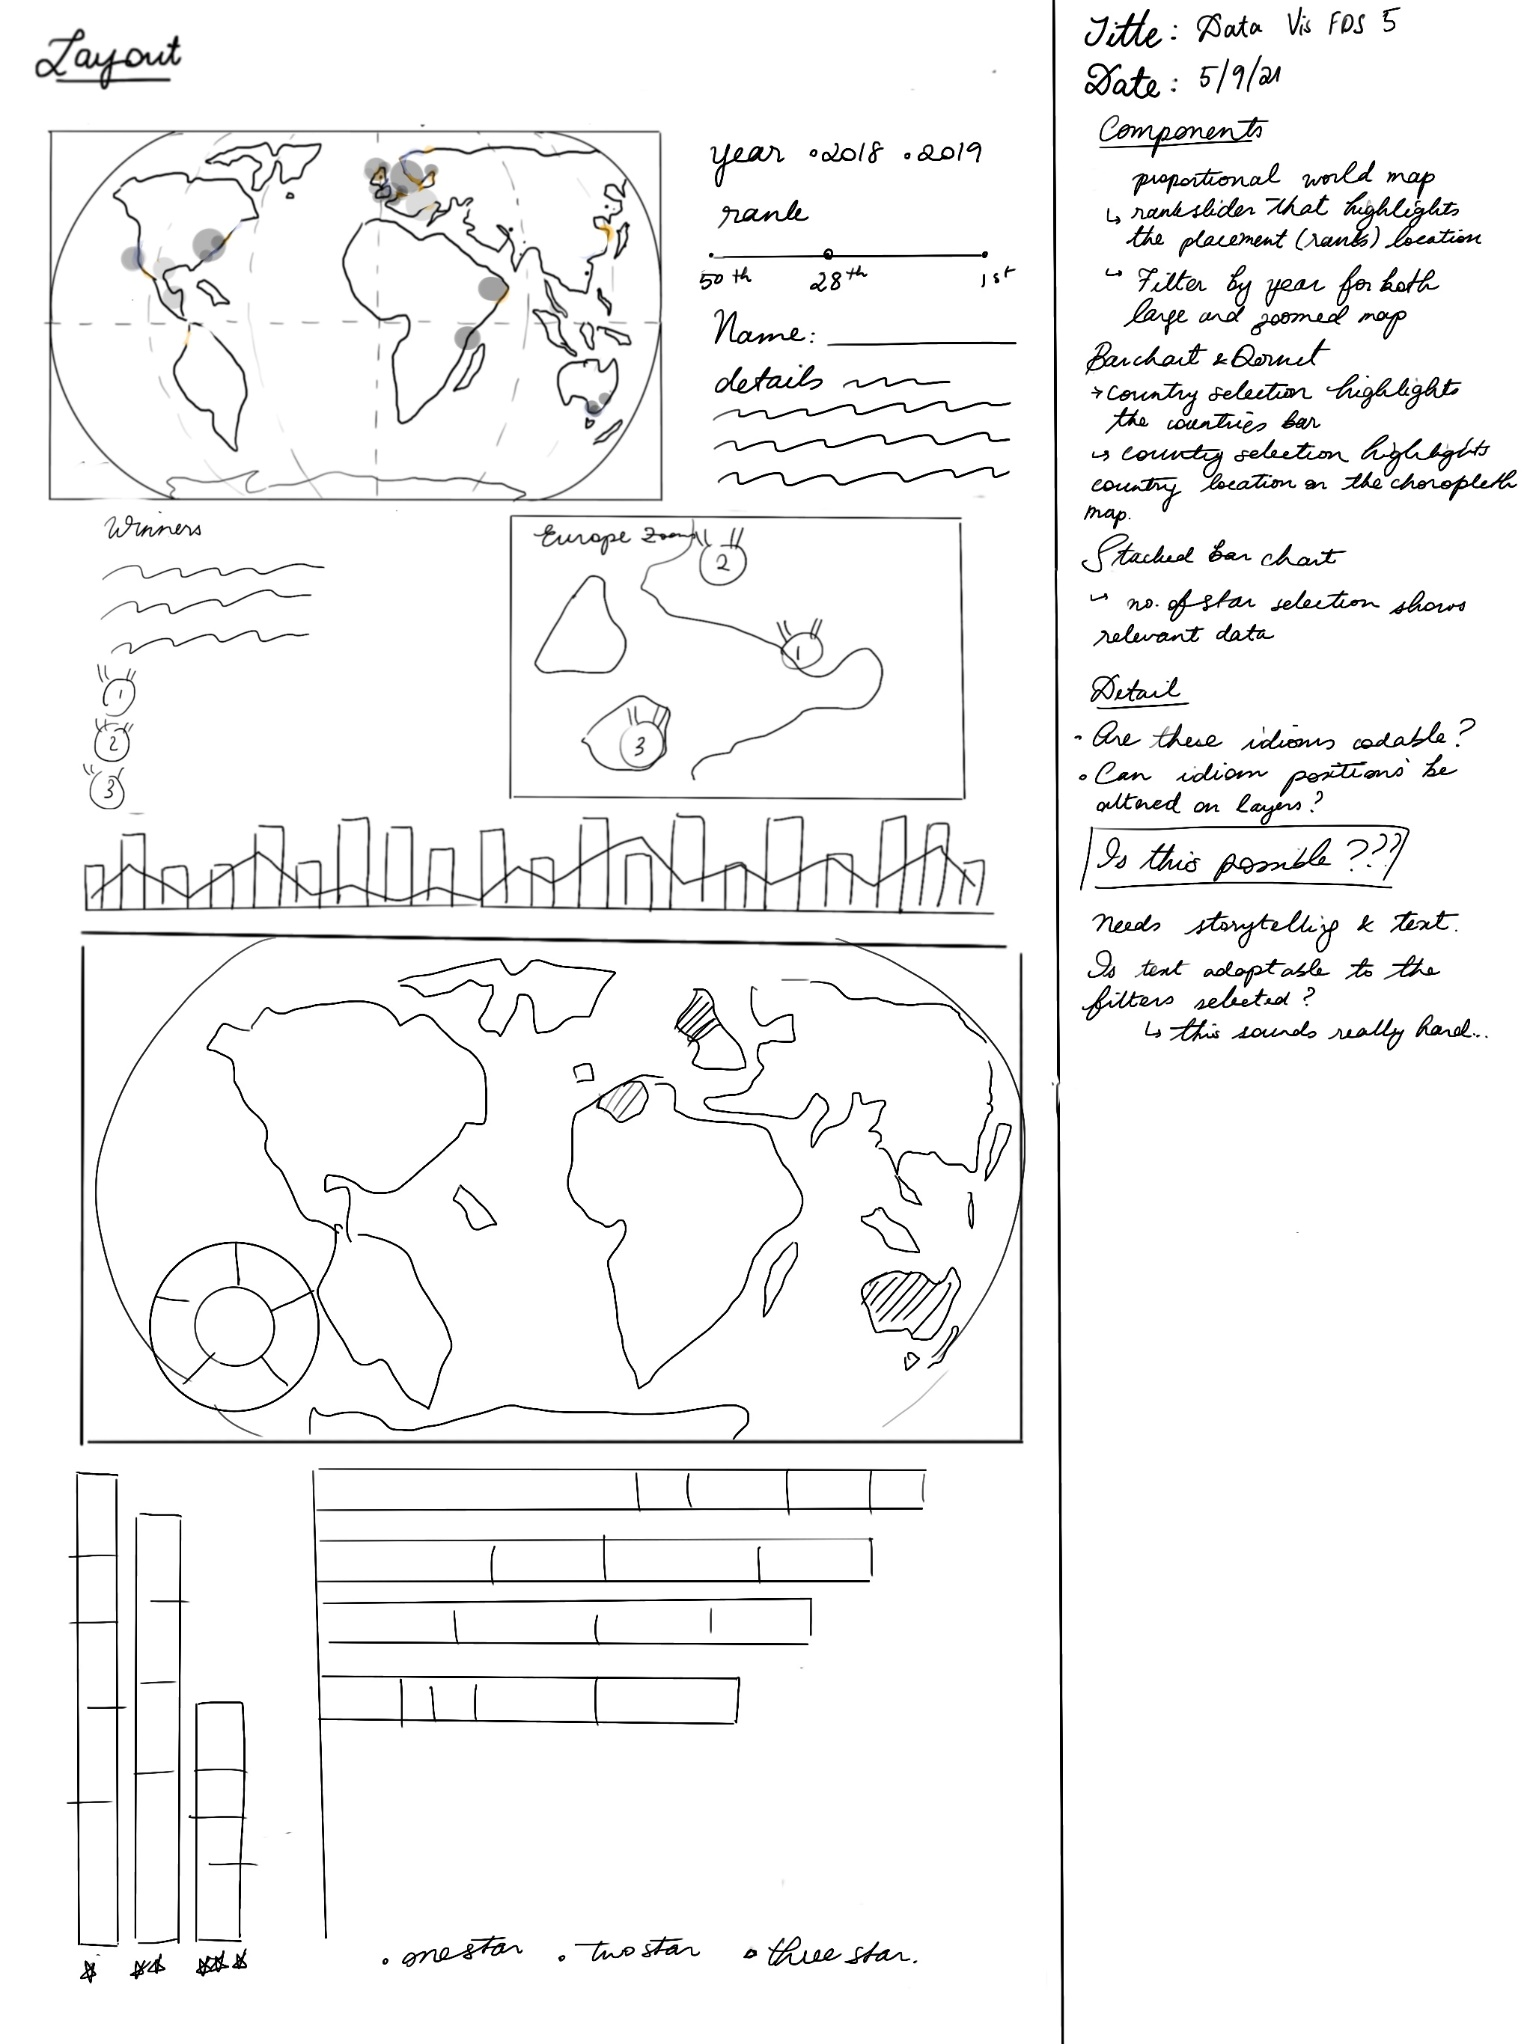 Layout
year •2018 •2019
rank
50th 28th 1st
Name:
details
Winners
1
2
3
Europe Zoom
2
1
3
• one star • two star • three star.
Title: Data Vis FDS 5
Date: 5/9/21
Components
proportional world map
↳ rankslider that highlights
the placement (ranks) location
↳ Filter by year for both
large and zoomed map
Barchart & Donut
→ country selection highlights
the countries bar
↳ country selection highlights
country location on the choropleth
map.
Stacked bar chart
↳ no. of star selection shows
relevant data
Detail
• Are these idioms codable?
• Can idiom positions be
altered on layers?
Is this possible???
Needs storytelling & text.
Is text adaptable to the
filters selected?
↳ this sounds really hard...